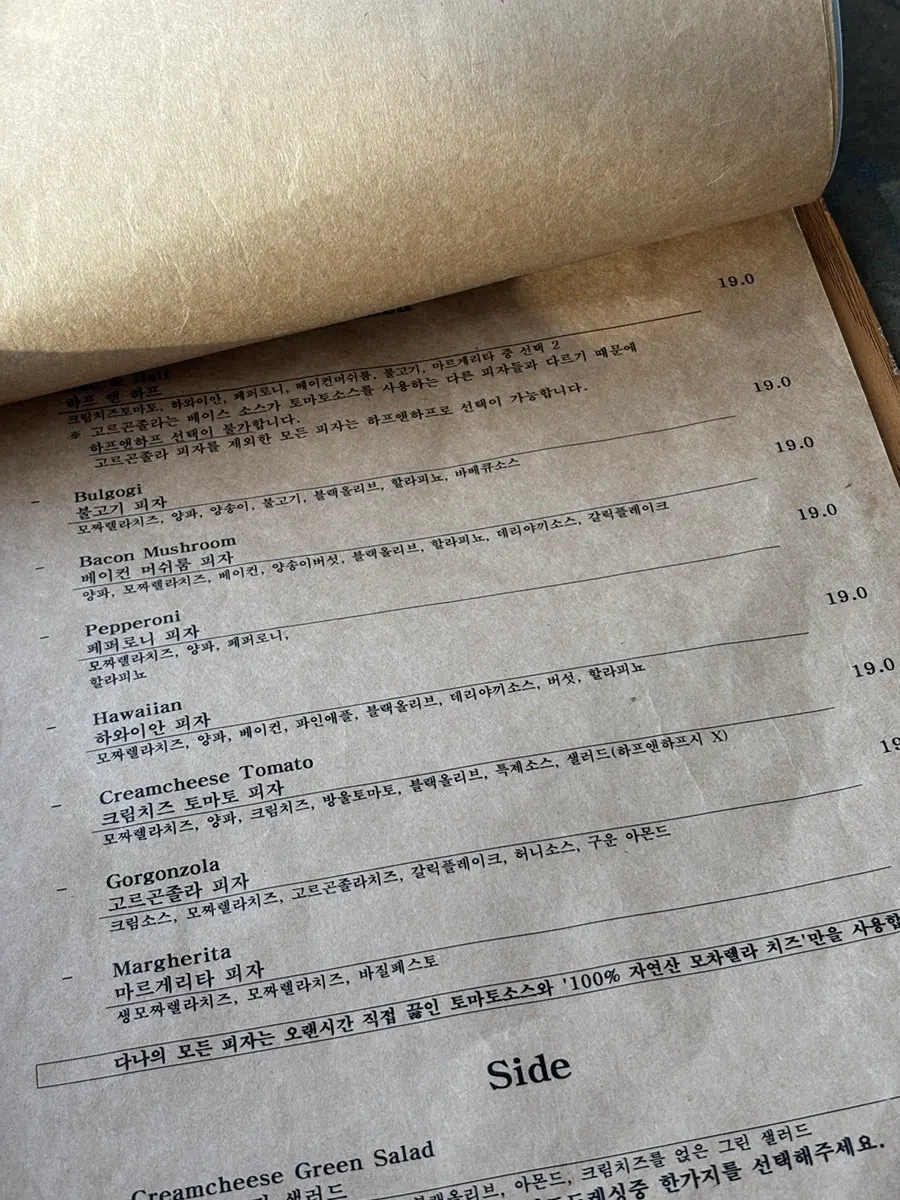 19.0
하프 앤 하프
크림치즈토마토, 하와이안, 페퍼로니, 베이컨머쉬룸, 불고기, 마르게리타 중 선택 2
※ 고르곤졸라는 베이스 소스가 토마토소스를 사용하는 다른 피자들과 다르기 때문에
하프앤하프 선택이 불가합니다.
고르곤졸라 피자를 제외한 모든 피자는 하프앤하프로 선택이 가능합니다.
- Bulgogi 19.0
불고기 피자
모짜렐라치즈, 양파, 양송이, 불고기, 블랙올리브, 할라피뇨, 바베큐소스
- Bacon Mushroom 19.0
베이컨 머쉬룸 피자
양파, 모짜렐라치즈, 베이컨, 양송이버섯, 블랙올리브, 할라피뇨, 데리야끼소스, 갈릭플레이크
- Pepperoni 19.0
페퍼로니 피자
모짜렐라치즈, 양파, 페퍼로니,
할라피뇨
- Hawaiian 19.0
하와이안 피자
모짜렐라치즈, 양파, 베이컨, 파인애플, 블랙올리브, 데리야끼소스, 버섯, 할라피뇨
- Creamcheese Tomato 19.0
크림치즈 토마토 피자
모짜렐라치즈, 양파, 크림치즈, 방울토마토, 블랙올리브, 특제소스, 샐러드(하프앤하프시 X)
- Gorgonzola 19
고르곤졸라 피자
크림소스, 모짜렐라치즈, 고르곤졸라치즈, 갈릭플레이크, 허니소스, 구운 아몬드
- Margherita
마르게리타 피자
생모짜렐라치즈, 모짜렐라치즈, 바질페스토
다나의 모든 피자는 오랜시간 직접 끓인 토마토소스와 '100% 자연산 모차렐라 치즈'만을 사용합
Side
Creamcheese Green Salad
샐러드
블랙올리브, 아몬드, 크림치즈를 얹은 그린 샐러드
드레싱중 한가지를 선택해주세요.